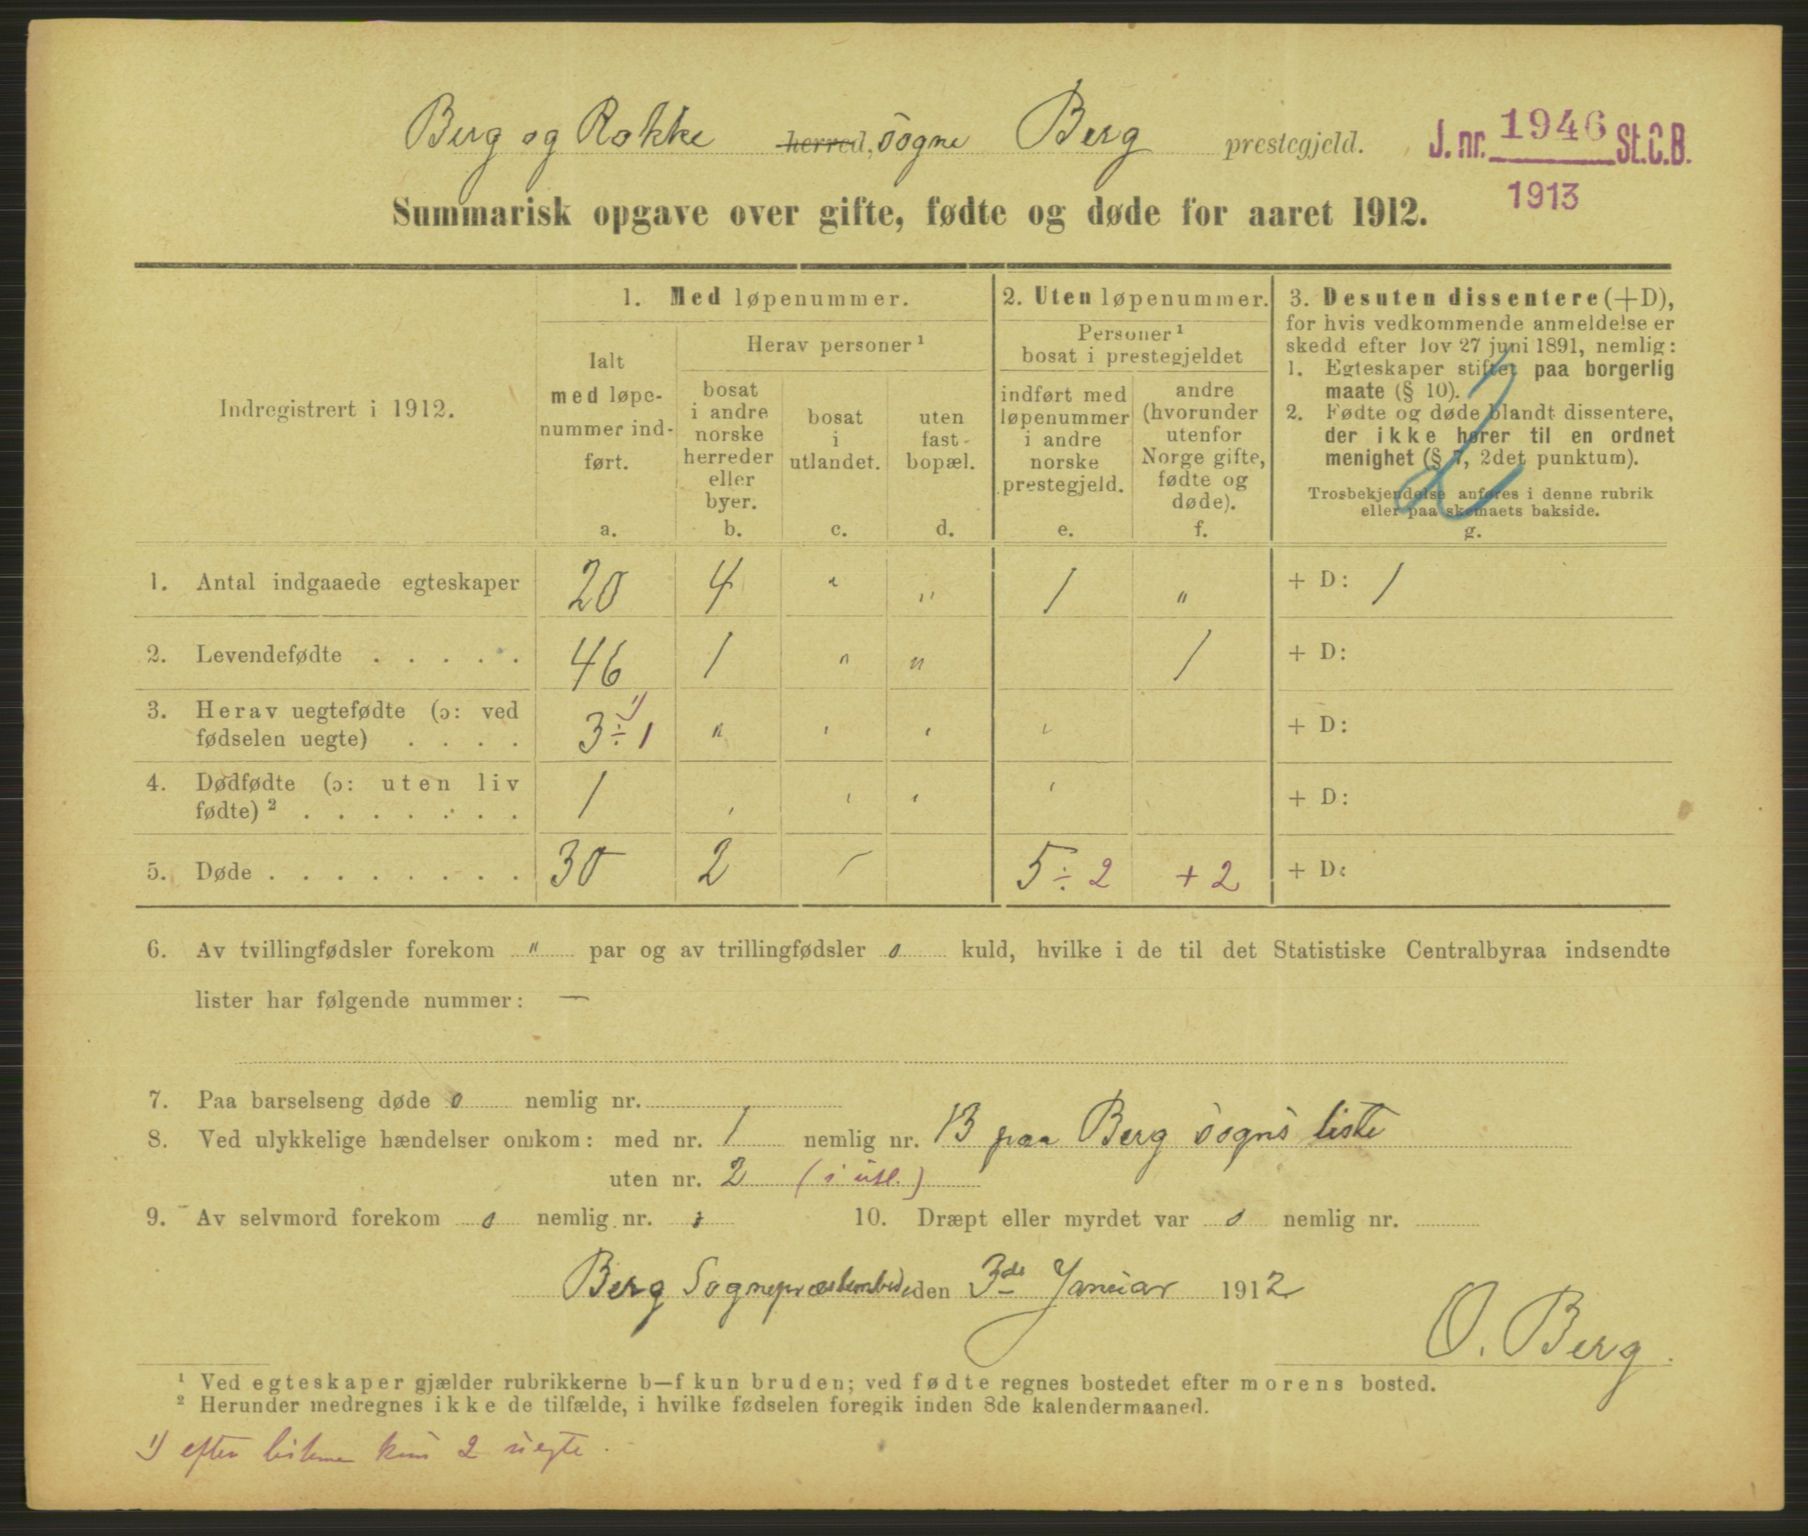 Berg og Rokke herred, sogne Berg prestegjeld.
J. nr. 1946 St.C.B.
1913
Summarisk opgave over gifte, fødte og døde for aaret 1912.
Indregistrert i 1912.
1. Med løpenummer.
Ialt
med løpe-
nummer ind-
ført.
a.
Herav personer ¹
bosat
i andre
norske
herreder
eller
byer.
b.
bosat
i
utlandet.
c.
uten
fast-
bopæl.
d.
2. Uten løpenummer.
Personer ¹
bosat i prestegjeldet
indført med
løpenummer
i andre
norske
prestegjeld.
e.
andre
(hvorunder
utenfor
Norge gifte,
fødte og
døde).
f.
3. Desuten dissentere (+D),
for hvis vedkommende anmeldelse er
skedd efter lov 27 juni 1891, nemlig:
1. Egteskaper stiftet paa borgerlig
maate (§ 10).
2. Fødte og døde blandt dissentere,
der ikke hører til en ordnet
menighet (§ 7, 2det punktum).
Trosbekjendelse anføres i denne rubrik
eller paa skemaets bakside.
g.
1. Antal indgaaede egteskaper 20 4 " " 1 " + D: 1
2. Levendefødte . . . . . 46 1 " " 1 + D:
3. Herav uegtefødte (ɔ: ved
fødselen uegte) . . . . 3 ÷ 1 ¹) " ' ' ' + D:
4. Dødfødte (ɔ: uten liv
fødte) ² . . . . . . . 1 ' ' ' ' + D:
5. Døde . . . . . . . . 30 2 – 5 ÷ 2 + 2 + D:
6. Av tvillingfødsler forekom " par og av trillingfødsler 0 kuld, hvilke i de til det Statistiske Centralbyraa indsendte
lister har følgende nummer: —
7. Paa barselseng døde 0 nemlig nr.
8. Ved ulykkelige hændelser omkom: med nr. 1 nemlig nr. 13 paa Berg sogns liste
uten nr. 2 (i utl.)
9. Av selvmord forekom 0 nemlig nr. 10. Dræpt eller myrdet var 0 nemlig nr.
Berg Sognepræstembede den 3de Januar 1912
O. Berg.
¹ Ved egteskaper gjælder rubrikkerne b—f kun bruden; ved fødte regnes bostedet efter morens bosted.
² Herunder medregnes ikke de tilfælde, i hvilke fødselen foregik inden 8de kalendermaaned.
¹) efter listerne kun 2 uegte.